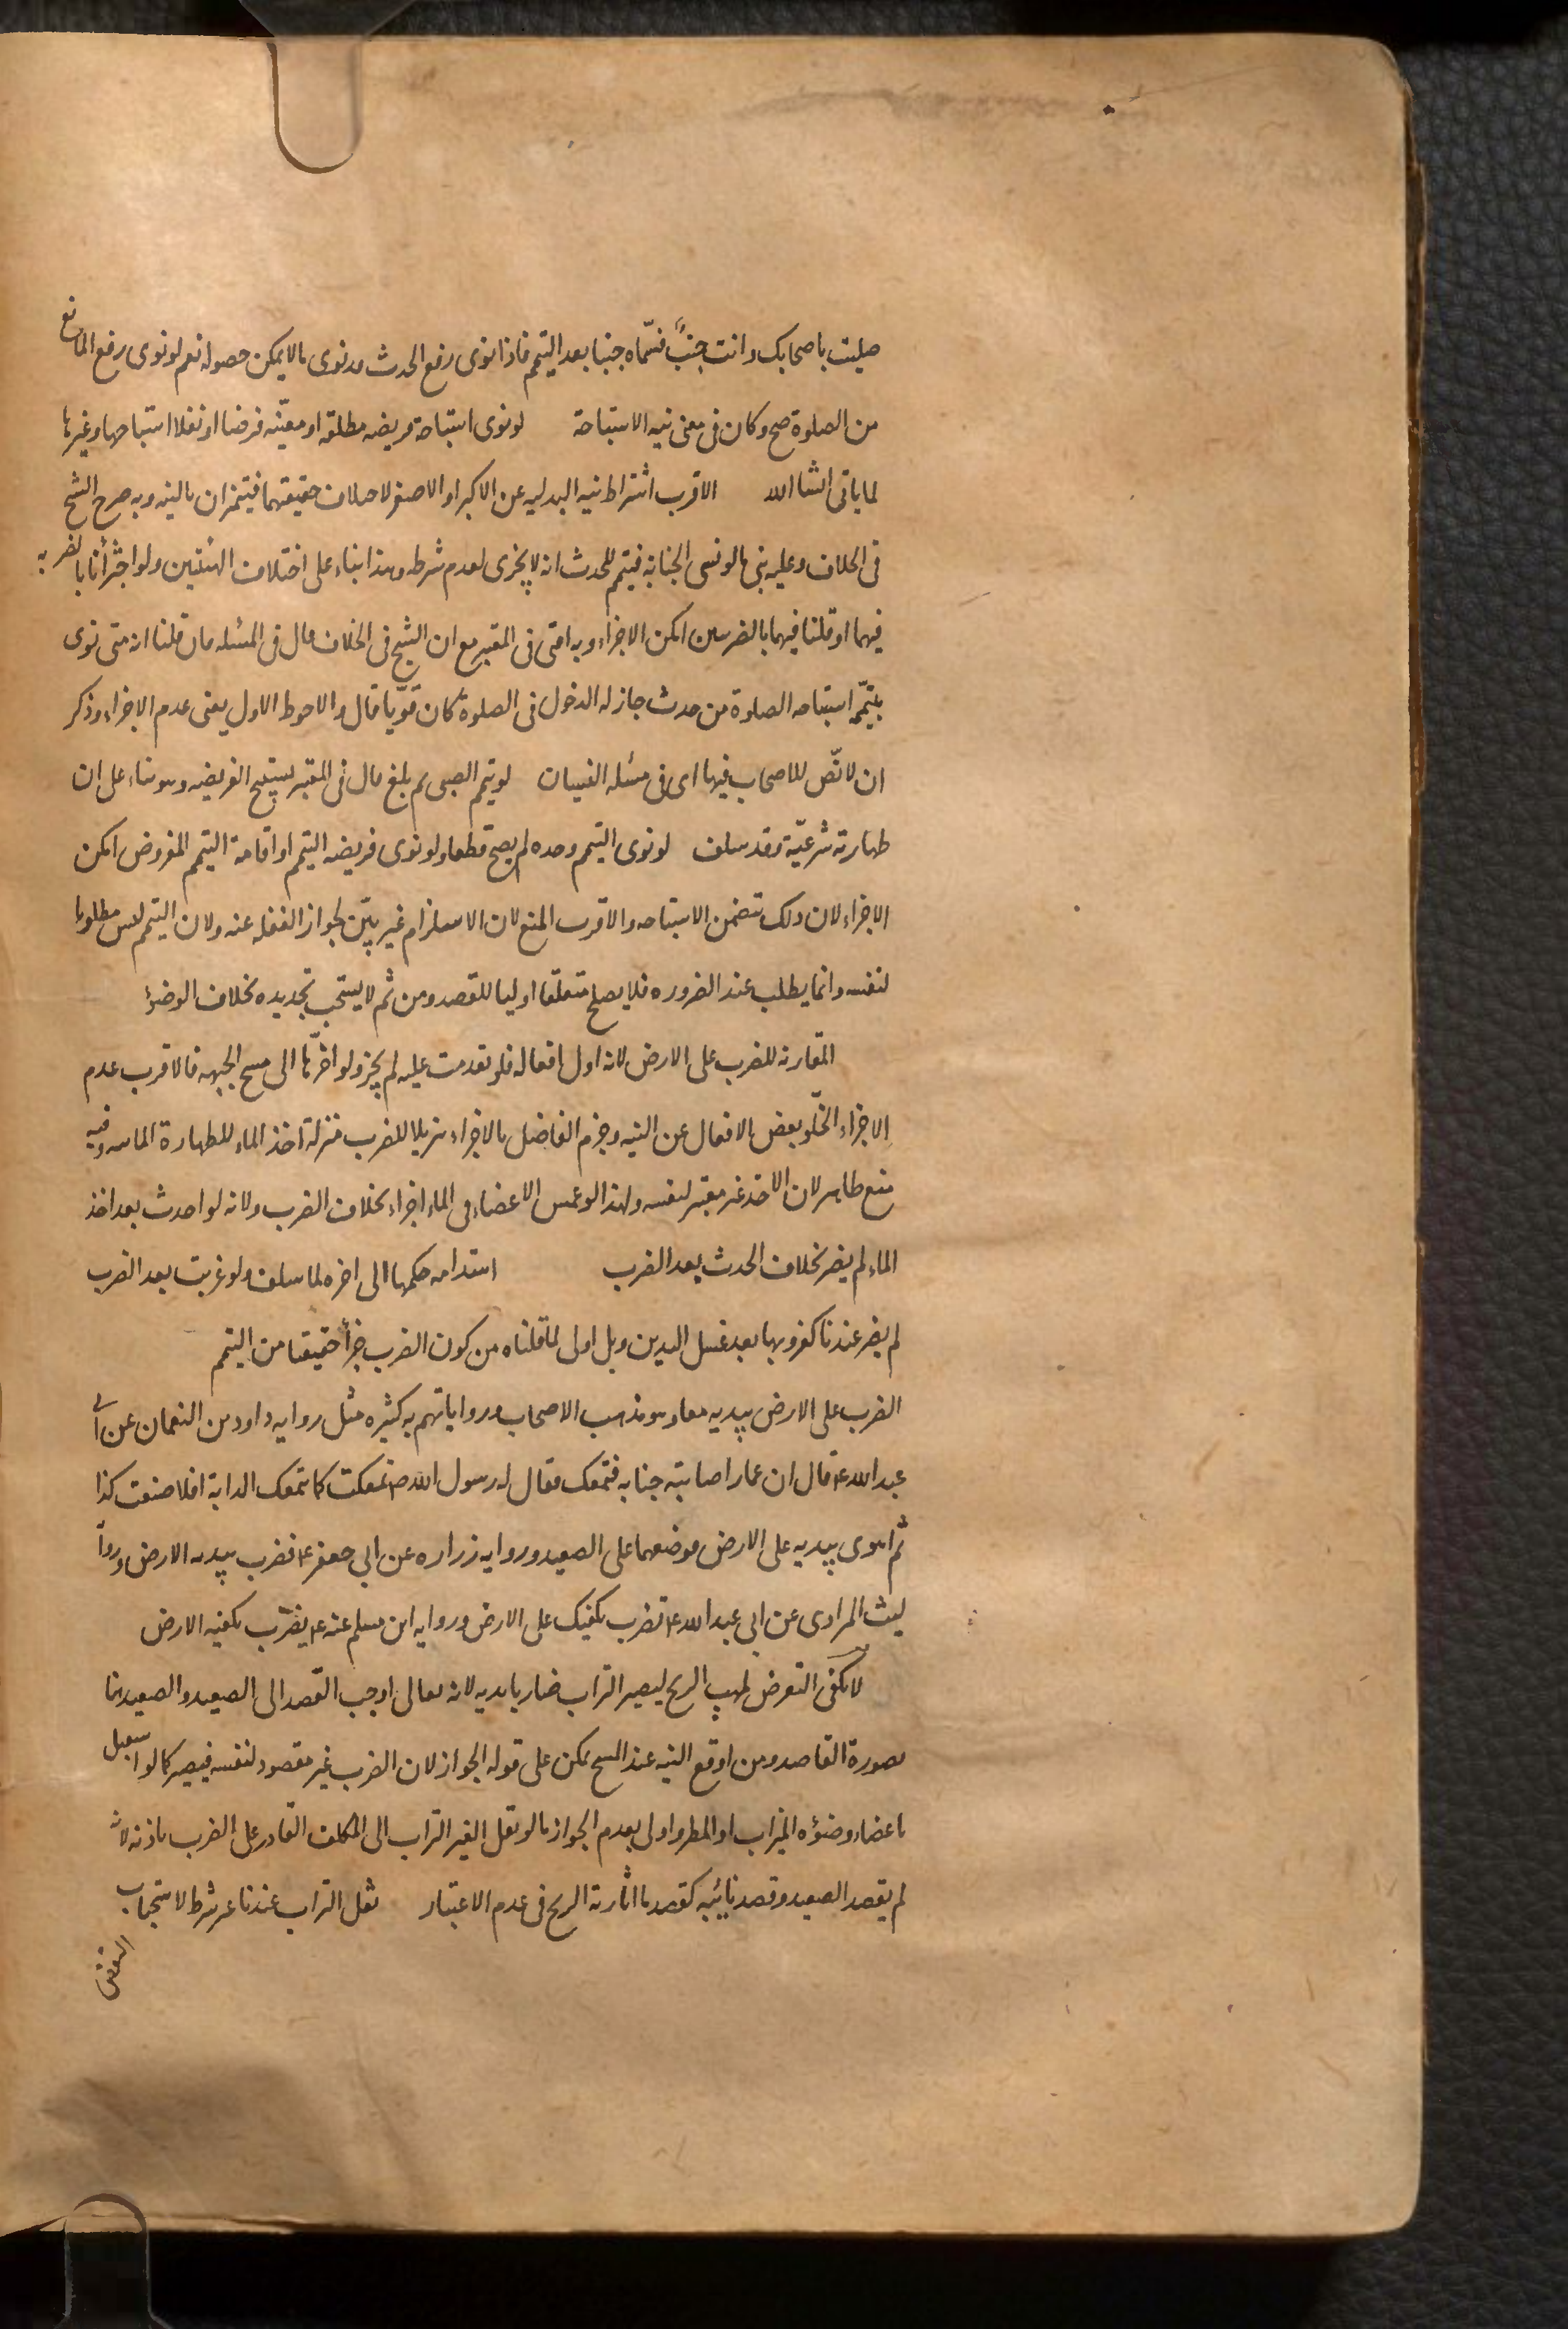 صليت باصحابك وانت جنب فسمّاه جنبا بعد التيمم فاذا نوى رفع الحدث فقد نوى ما لا يمكن حصوله نعم لو نوى رفع المانع
من الصلوة صح وكان فى معنى نيه الاستباحة لو نوى استباحة فريضه مطلقه او معيّنه فرضا او نفلا استباحها وغيرها
لما ياتى انشا الله الاقرب اشتراط نيه البدليه عن الاكبر او الاصغر لاختلاف حقيقتهما فيتميزان بالنيه وبه صرح الشيخ
فى الخلاف وعليه بنى ما لو نسى الجنابة فتيمم للحدث انه لا يجزى لعدم شرطه وهذا بناء على اختلاف الهيئتين ولو اجتزأنا بالضربه
فيهما او قلنا فيهما بالضربتين امكن الاجزاء وبه افتى فى المعتبر مع ان الشيخ فى الخلاف قال فى المسئله فان قلنا انه متى نوى
بتيمّمه استباحه الصلوة من حدث جاز له الدخول فى الصلوة كان قويّا قال والاحوط الاول يعنى عدم الاجزاء وذكر
ان لا نصّ للاصحاب فيها اى فى مسئله النسيان لو تيمم الصبى ثم بلغ قال فى المعتبر يستبيح الفريضه وهو بناء على ان
طهارته شرعيّة وقد سلف لو نوى التيمم وحده لم يصح قطعا ولو نوى فريضه التيمم او اقامة التيمم المفروض امكن
الاجزاء لان ذلك تتضمن الاستباحه والاقرب المنع لان الاستلزام غير بيّن لجواز الغفله عنه ولان التيمم ليس مطلوبا
لنفسه وانما يطلب عند الضروره فلا يصلح متعلقا اوليا للقصد ومن ثم لا يستحب تجديده بخلاف الوضؤ
المقارنه للضرب على الارض لانه اول افعاله فلو تقدمت عليه لم يجز ولو اخّرها الى مسح الجبهه فالاقرب عدم
الاجزاء لخلّو بعض الافعال عن النيه وجزم الفاضل بالاجزاء تنزيلا للضرب منزلة اخذ الماء للطهارة المائيه وفيه
منع ظاهر لان الاخذ غير معتبر لنفسه ولهذا لو غمس الاعضاء فى الماء اجزاء بخلاف الضرب ولانه لو احدث بعد اخذ
الماء لم يضر بخلاف الحدث بعد الضرب استدامه حكمها الى اخره لما سلف ولو غربت بعد الضرب
لم يضر عندنا كعزوبها بعد غسل اليدين وبل اولى لما قلناه من كون الضرب جزأ حقيقيا من التيمم
الضرب على الارض بيديه معا وهو مذهب الاصحاب ورواياتهم به كثيره مثل روايه داود بن النعمان عن ابى
عبد الله ع قال ان عمارا اصابته جنابه فتمعك فقال له رسول الله ص تمعكت كما تتمعك الدابة افلا صنعت كذا
ثم اهوى بيديه على الارض فوضعهما على الصعيد وروايه زراره عن ابي جعفر ع فضرب بيديه الارض ورواية
ليث المرادى عن ابى عبد الله ع تضرب بكفيك على الارض وروايه ابن مسلم عنه ع يضرب بكفيه الارض
لا يكفى التعرض لمهب الريح ليصير التراب ضاربا بديه لانه تعالى اوجب القصد الى الصعيد والصعيد هنا
بصورة القاصد ومن اوقع النيه عند المسح يمكن على قوله الجواز لان الضرب غير مقصود لنفسه فيصير كما لو استقبل
باعضاء وضؤه الميزاب او المطر واولى بعدم الجواز ما لو نقل الغير التراب الى المكلف القادر على الضرب باذنه لانه
لم يقصد الصعيد وقصد نائبه كقصد ما اثارته الريح فى عدم الاعتبار نقل التراب عندنا غير شرط لاستحباب
النفض